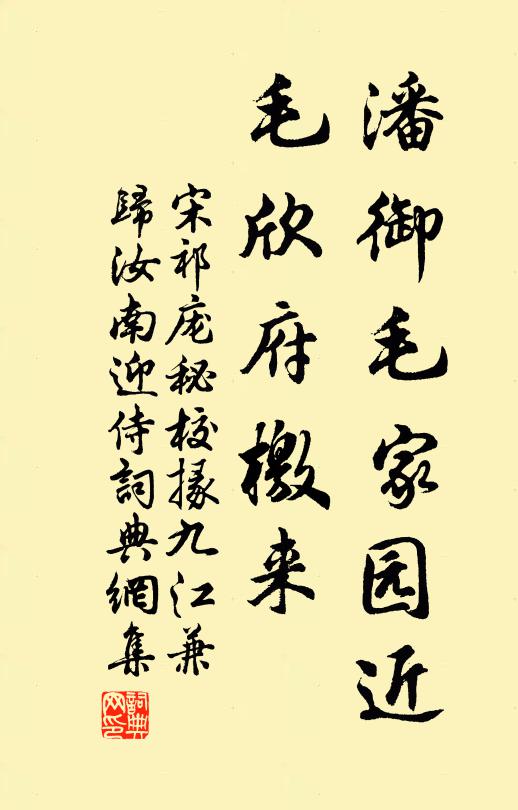 潘御毛家园近
毛欣府檄来
宋祁庞秘校掾九江兼
歸汝南迎侍詞典網集
詞典網印